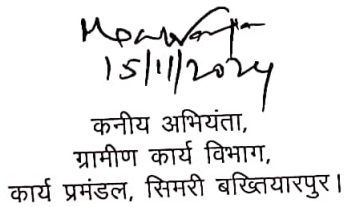 15/11/2024
कनीय अभियंता,
ग्रामीण कार्य विभाग,
कार्य प्रमंडल, सिमरी बख्तियारपुर।